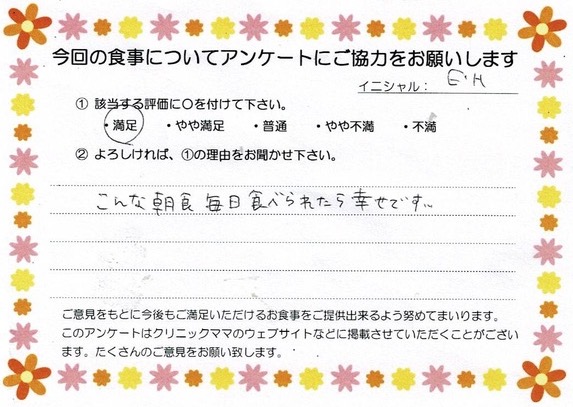 今回の食事についてアンケートにご協力をお願いします
イニシャル： E・H
① 該当する評価に〇を付けて下さい。
・満足 ・やや満足 ・普通 ・やや不満 ・不満
② よろしければ、①の理由をお聞かせ下さい。
こんな朝食 毎日食べられたら幸せです。
ご意見をもとに今後もご満足いただけるお食事をご提供出来るよう努めてまいります。
このアンケートはクリニックママのウェブサイトなどに掲載させていただくことがござい
ます。たくさんのご意見をお願い致します。